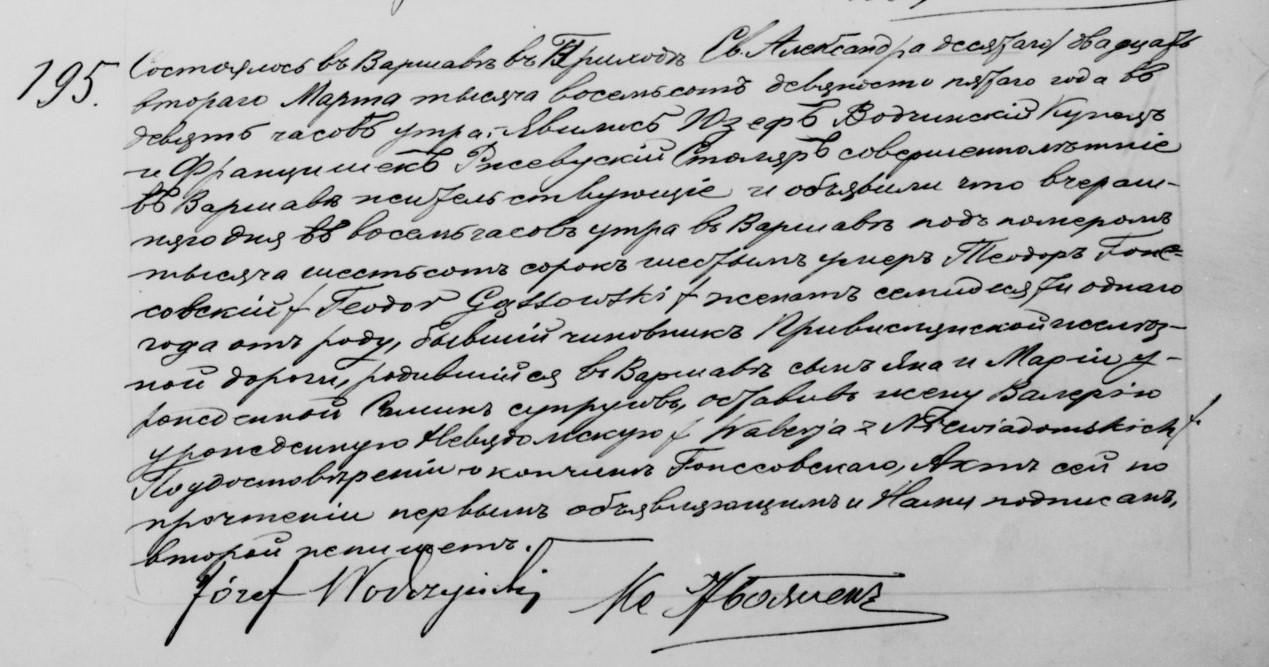 195.
Состоялось въ Варшавѣ въ Приходѣ Св. Александра десятаго/ двадцать
втораго Марта тысяча восемьсотъ девяносто пятаго года въ
девять часовъ утра. Явились Юзефъ Водчинскій Купецъ
и Францишекъ Ржевускій Столяръ совершеннолѣтніе
въ Варшавѣ жительствующіе и объявили что вчераш-
няго дня въ восемь часовъ утра въ Варшавѣ подъ номеромъ
тысяча шестьсотъ сорокъ шестымъ умеръ Теодоръ Гонс-
совскій / Teodor Gąssowski / женатъ семидесяти однаго
года отъ роду, бывшій чиновникъ Привислинской желѣз-
ной дороги, родившійся въ Варшавѣ сынъ Яна и Маріи у-
рожденной супруговъ, оставивъ жену Валерію
урожденную Невядомскую / Walerja z Niewiadomskich /.
По удостовѣреніи о кончинѣ Гонссовскаго, Актъ сей по
прочтеніи первымъ объявляющимъ и Нами подписанъ,
второй непишетъ.
Józef Wodczyński